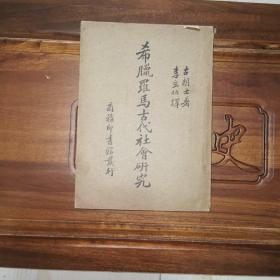 古朗士著
李玄伯譯
希臘羅馬古代社會研究
商務印書館發行
史